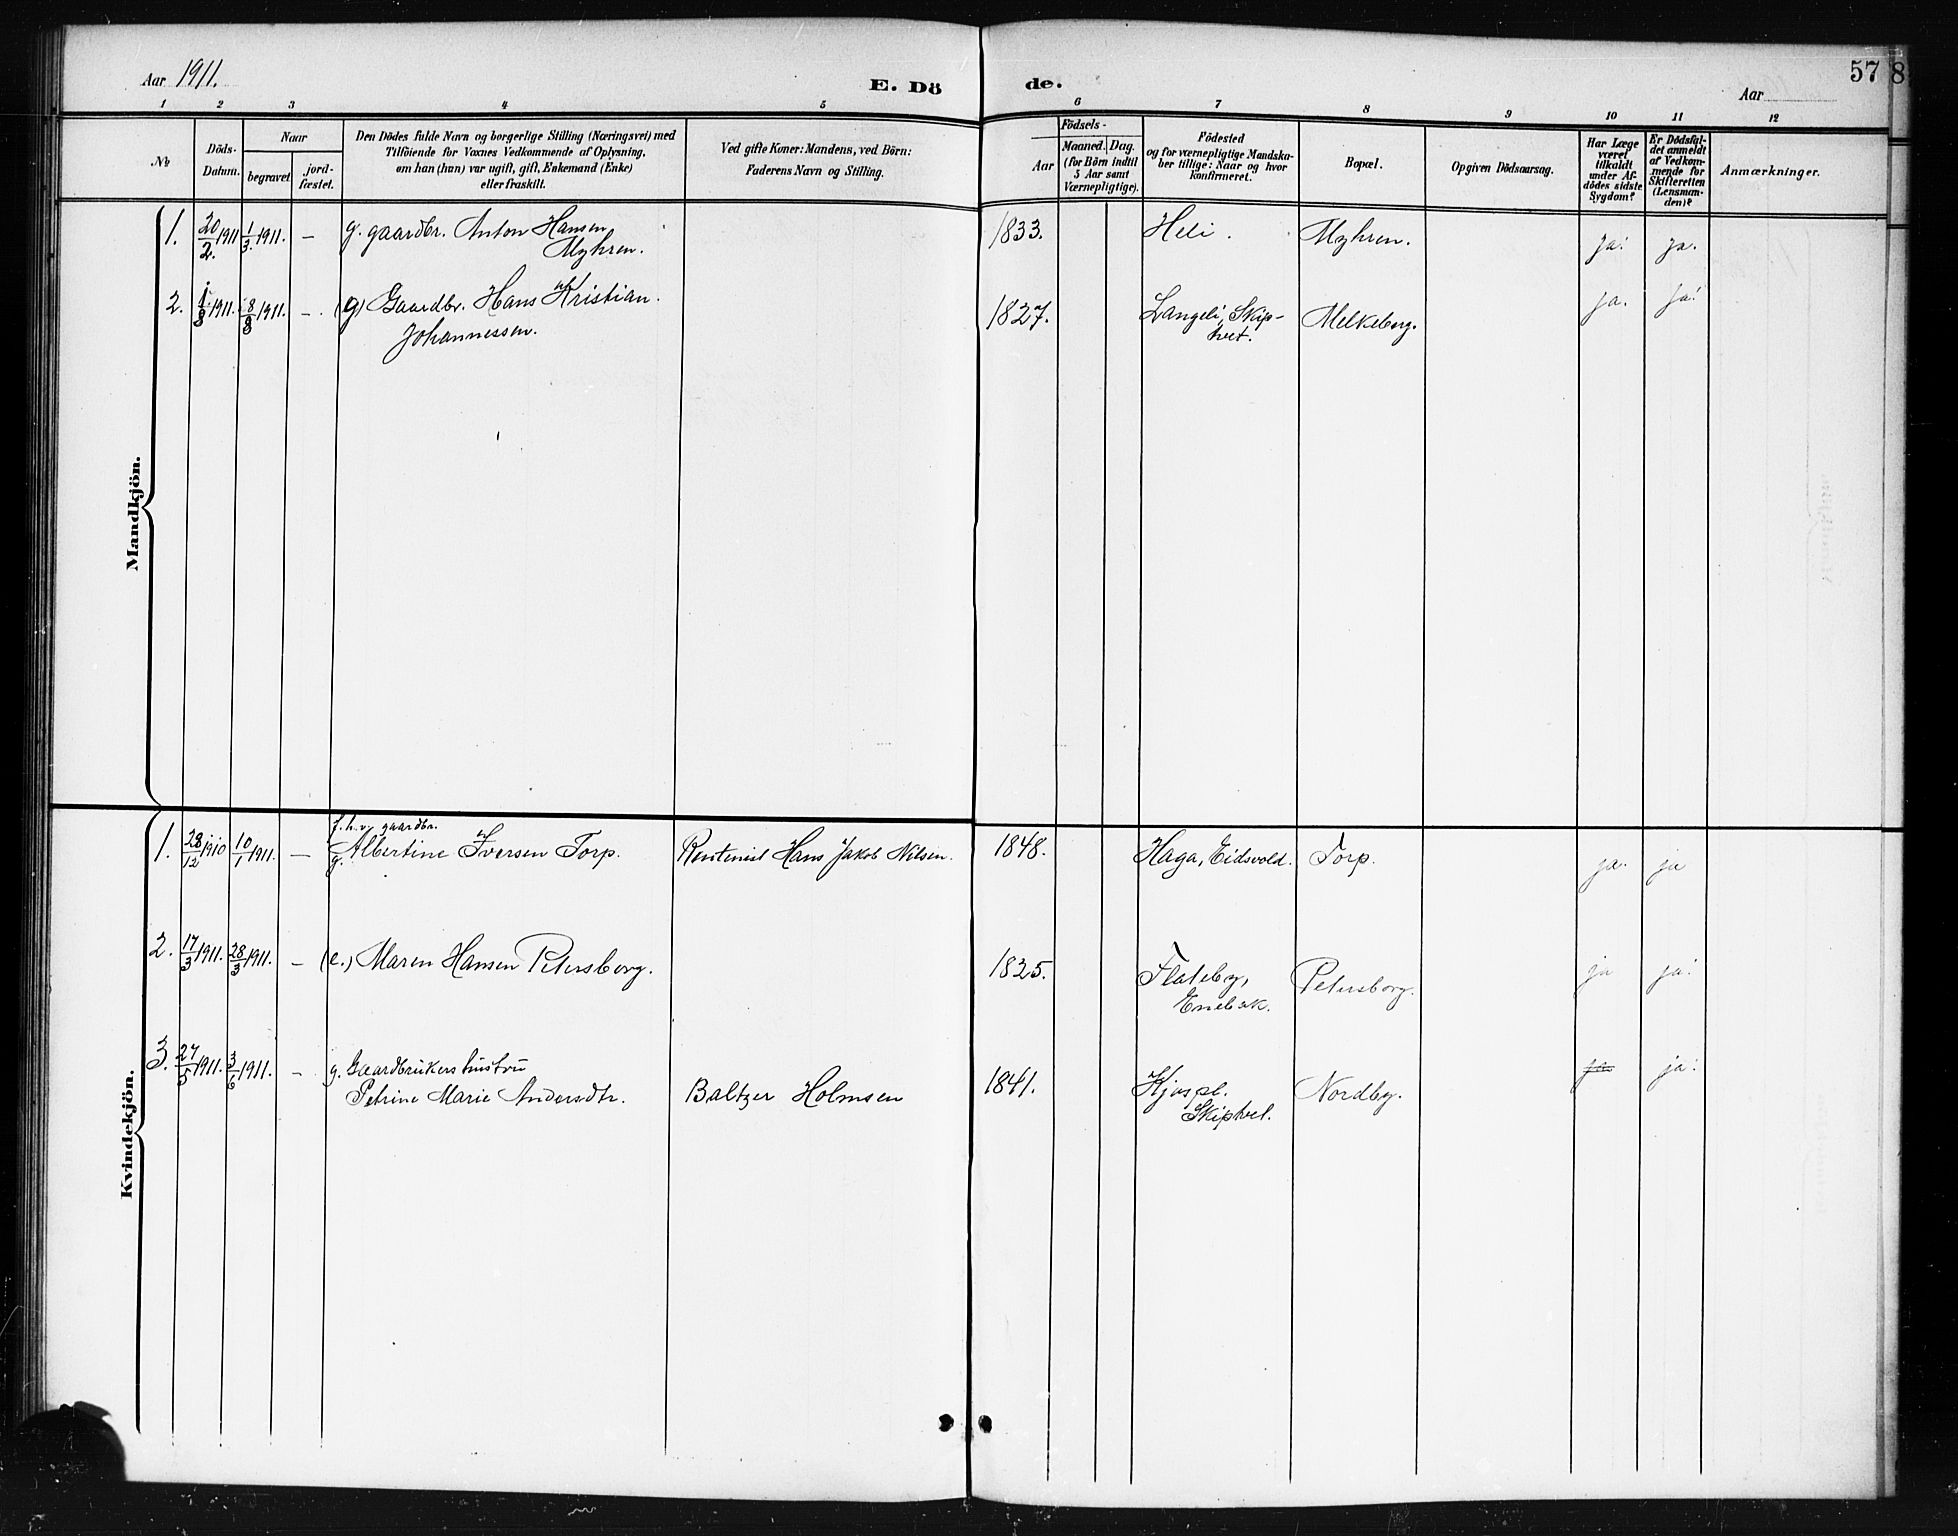 Aar 1911. E. Dö de. Aar 57 8
1 2 3 4 5 6 7 8 9 10 11 12
№
Döds-
Datum.
Naar
begravet
jord-
fæstet.
Den Dödes fulde Navn og borgerlige Stilling (Næringsvei) med
Tilföiende for Voxnes Vedkommende af Oplysning,
om han (hun) var ugift, gift, Enkemand (Enke)
eller fraskilt.
Ved gifte Koner: Mandens, ved Börn:
Faderens Navn og Stilling.
Födsels-
Aar
Maaned.
Dag.
(for Börn indtil
5 Aar samt
Værnepligtige).
Födested
og for værnepligtige Mandska-
ber tillige: Naar og hvor
konfirmeret.
Bopæl.
Opgiven Dödsaarsag.
Har Læge
været
tilkaldt
under Af-
dödes sidste
Sygdom?
Er Dödsfal-
det anmeldt
af Vedkom-
mende for
Skifteretten
(Lensman-
den)?
Anmærkninger.
Mandkjön.
1. 20/2 1911 1/3 1911. — g. gaardbr. Anton Hansen 1833. Heli. Myhren. ja. ja.
Myhren.
2. 1/8 1911. 8/8 1911. — (g) Gaardbr. Hans Kristian 1827. Langeli, Skip- Melkeberg. ja. ja.
Johannessen. tvet.
Kvindekjön.
f. h. v. gaardbr.
1. 28/12 1910 10/1 1911. — g. Albertine Iversen Torp. Rentenist Hans Jakob Nilsen. 1848. Haga, Eidsvold. Torp. ja. ja
2. 17/3 1911. 28/3 1911. — (e.) Maren Hansen Petersborg. 1825. Flateby, Petersborg. ja ja.
Enebak.
3. 27/5 1911. 3/6 1911. — g. Gaardbrukers hustru
Petrine Marie Andersdtr. Baltzer Holmsen 1841. Kjos pl. Nordby. ja ja.
Skiptvet.